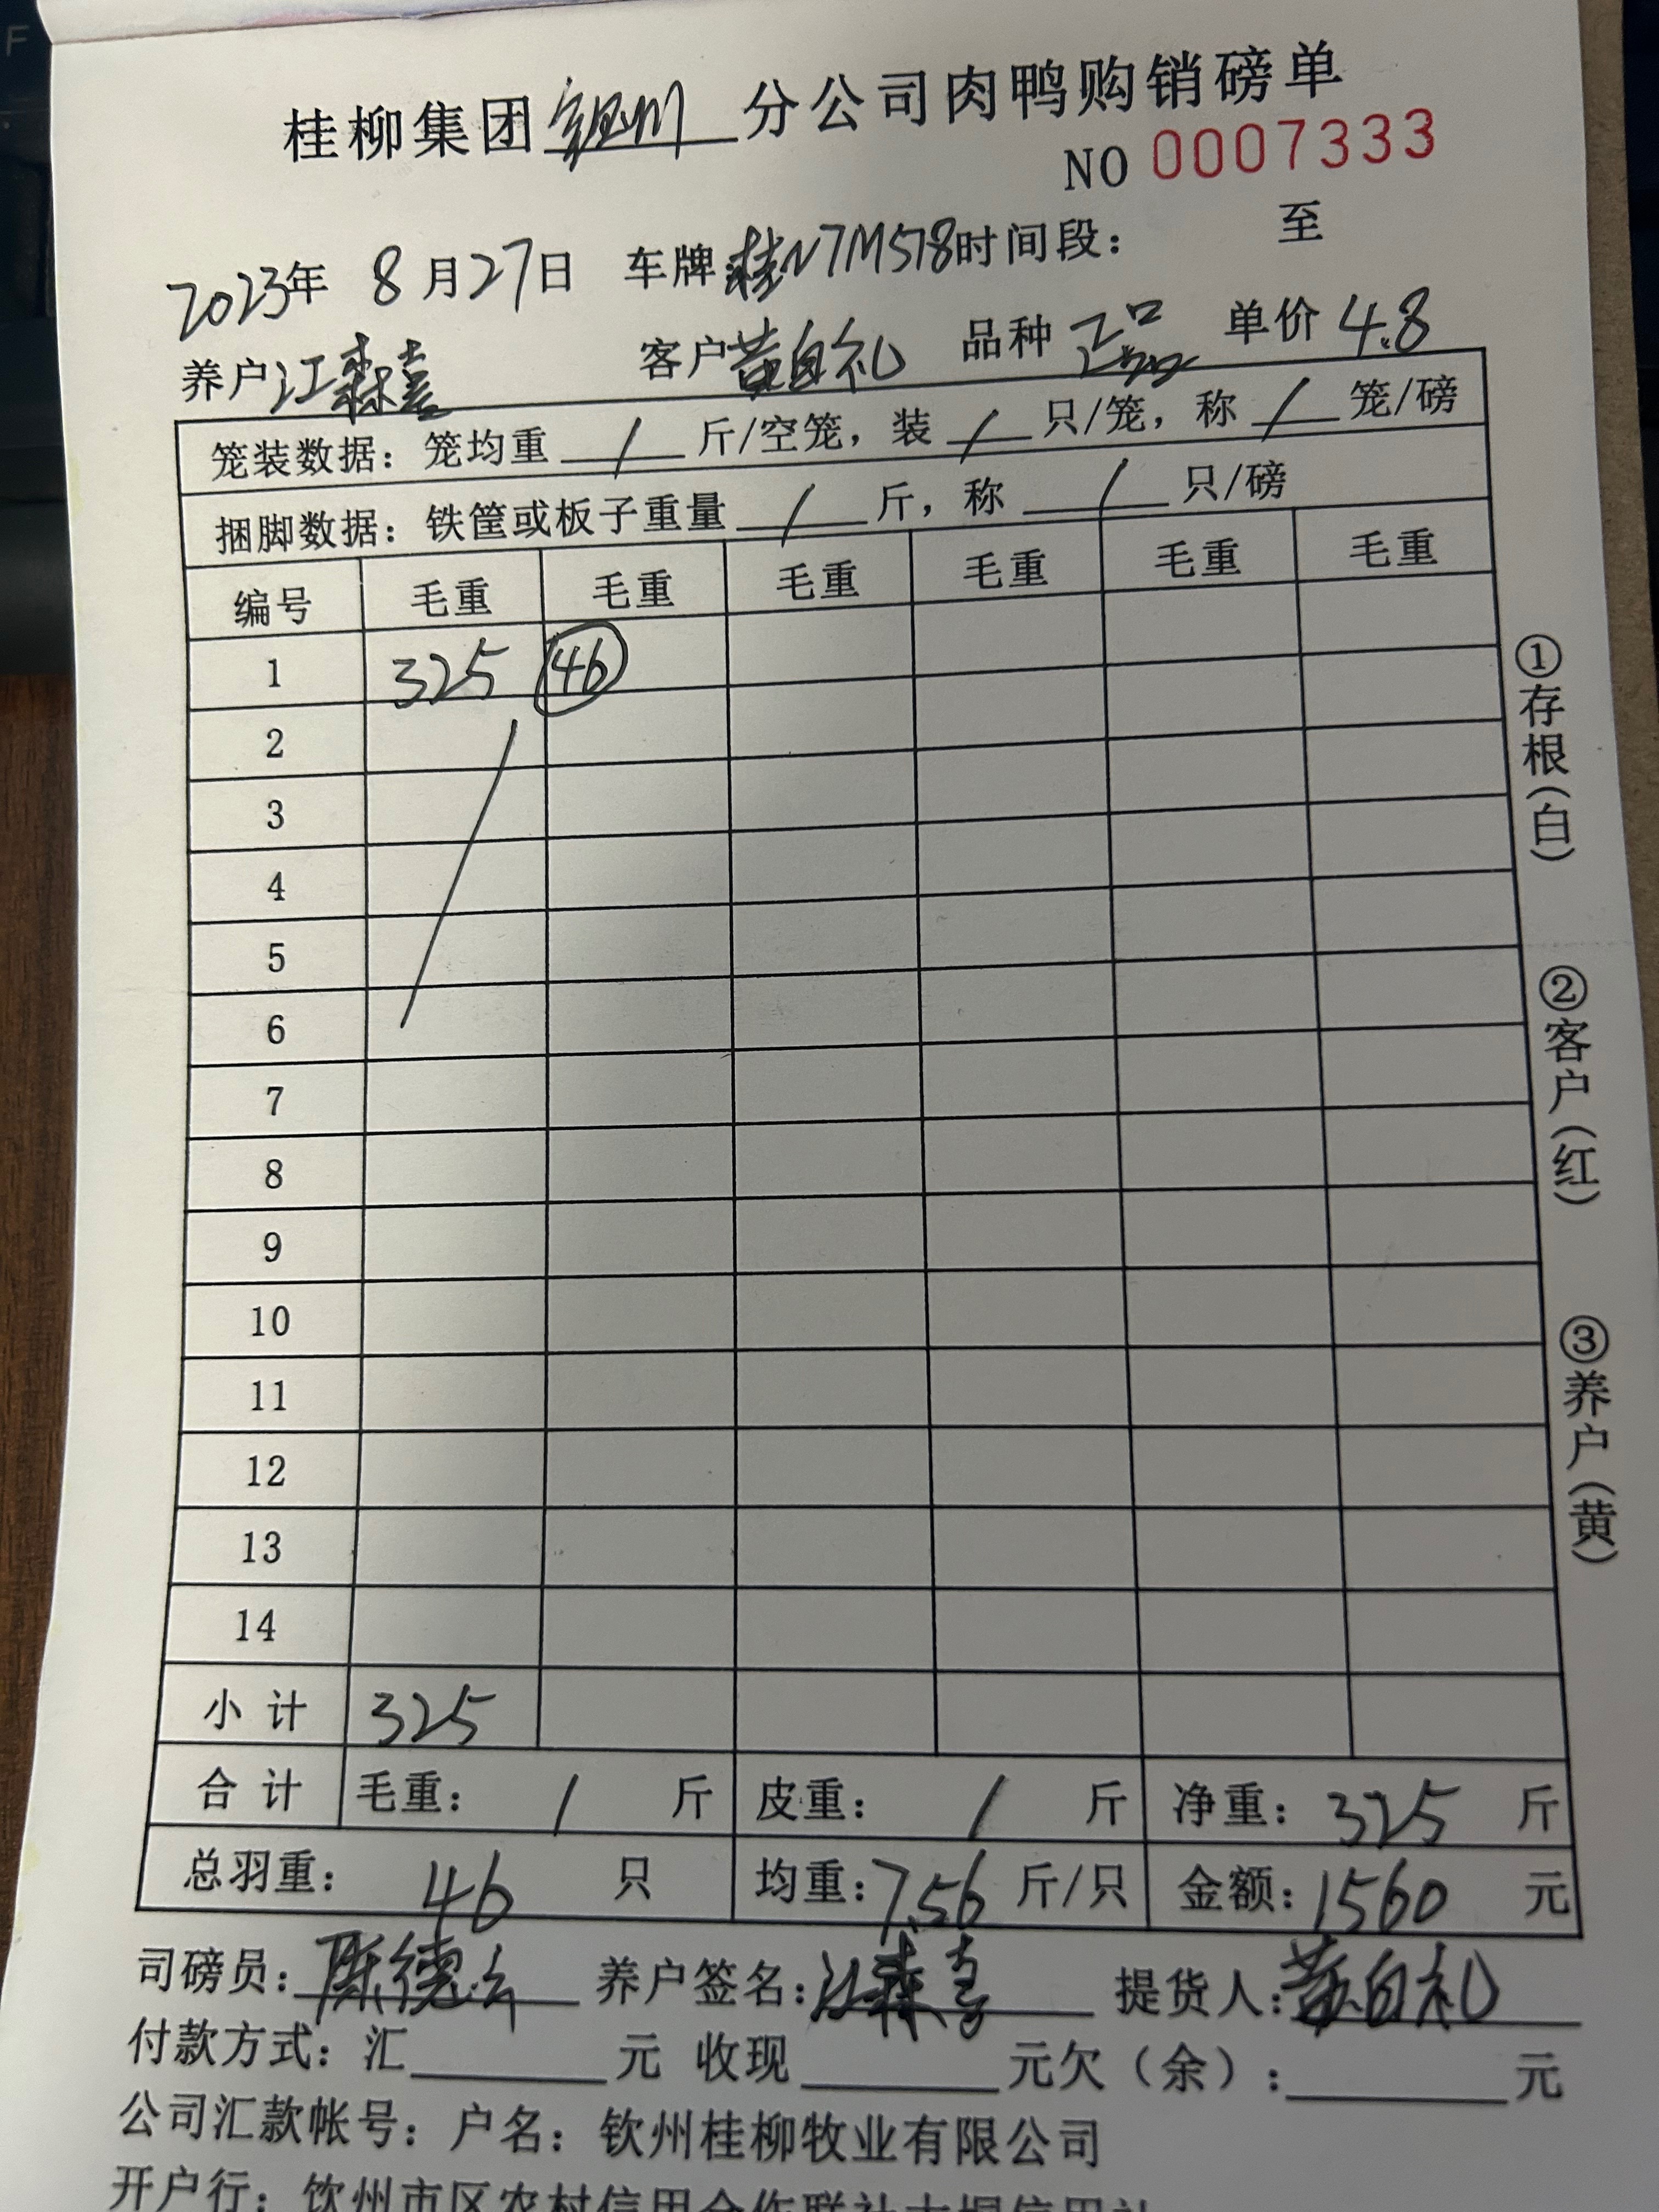 桂柳集团钦州分公司肉鸭购销磅单
NO 0007333
2023年 8月27日 车牌:桂N7M578时间段: 至
养户江森喜 客户黄自礼 品种正品 单价4.8
笼装数据: 笼均重 / 斤/空笼, 装 / 只/笼, 称 / 笼/磅
捆脚数据: 铁筐或板子重量 / 斤, 称 / 只/磅
编号 毛重 毛重 毛重 毛重 毛重 毛重
1 325 46
2
3
4
5
6
7
8
9
10
11
12
13
14
小 计 325
合 计 毛重: / 斤 皮重: / 斤 净重: 325 斤
总羽重: 46 只 均重:7.56 斤/只 金额:1560 元
司磅员:陈德云 养户签名:江森喜 提货人:黄自礼
付款方式: 汇 元 收现 元欠(余): 元
公司汇款帐号: 户名: 钦州桂柳牧业有限公司
开户行: 钦州市区农村信用合作联社大垌信用社
①存根(白)
②客户(红)
③养户(黄)